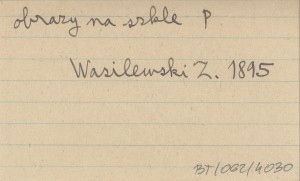 obrazy na szkle P
Wasilewski Z. 1895
BT/062/4030